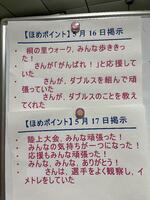 【ほめポイント】5月16日掲示
・桐の里ウォーク、みんな歩ききった！
・　　さんが「がんばれ！」と応援していた
・　　さんが、ダブルスを組んで頑張っていた
・　　さんが、ダブルスのことを教えてくれた
【ほめポイント】5月17日掲示
・陸上大会、みんな頑張った！
・みんなの気持ちが一つになった！
・応援もみんな頑張った！
・みんな、みんな、ありがとう！
・　　さんは、選手をよく観察し、イメトレをしていた